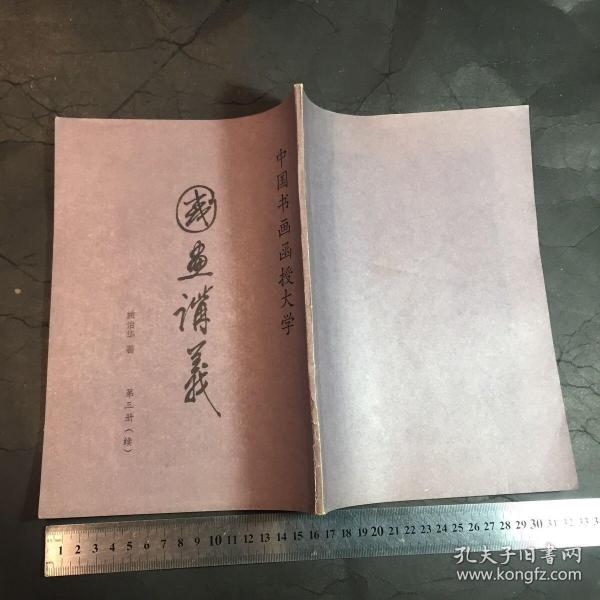 中国书画函授大学
國画講義
姚治华 著
第三册（续）
1 2 3 4 5 6 7 8 9 10 11 12 13 14 15 16 17 18 19 20 21 22 23 24 25 26 27 28 29 30 31 32 33
孔夫子旧书网
www.kongfz.com